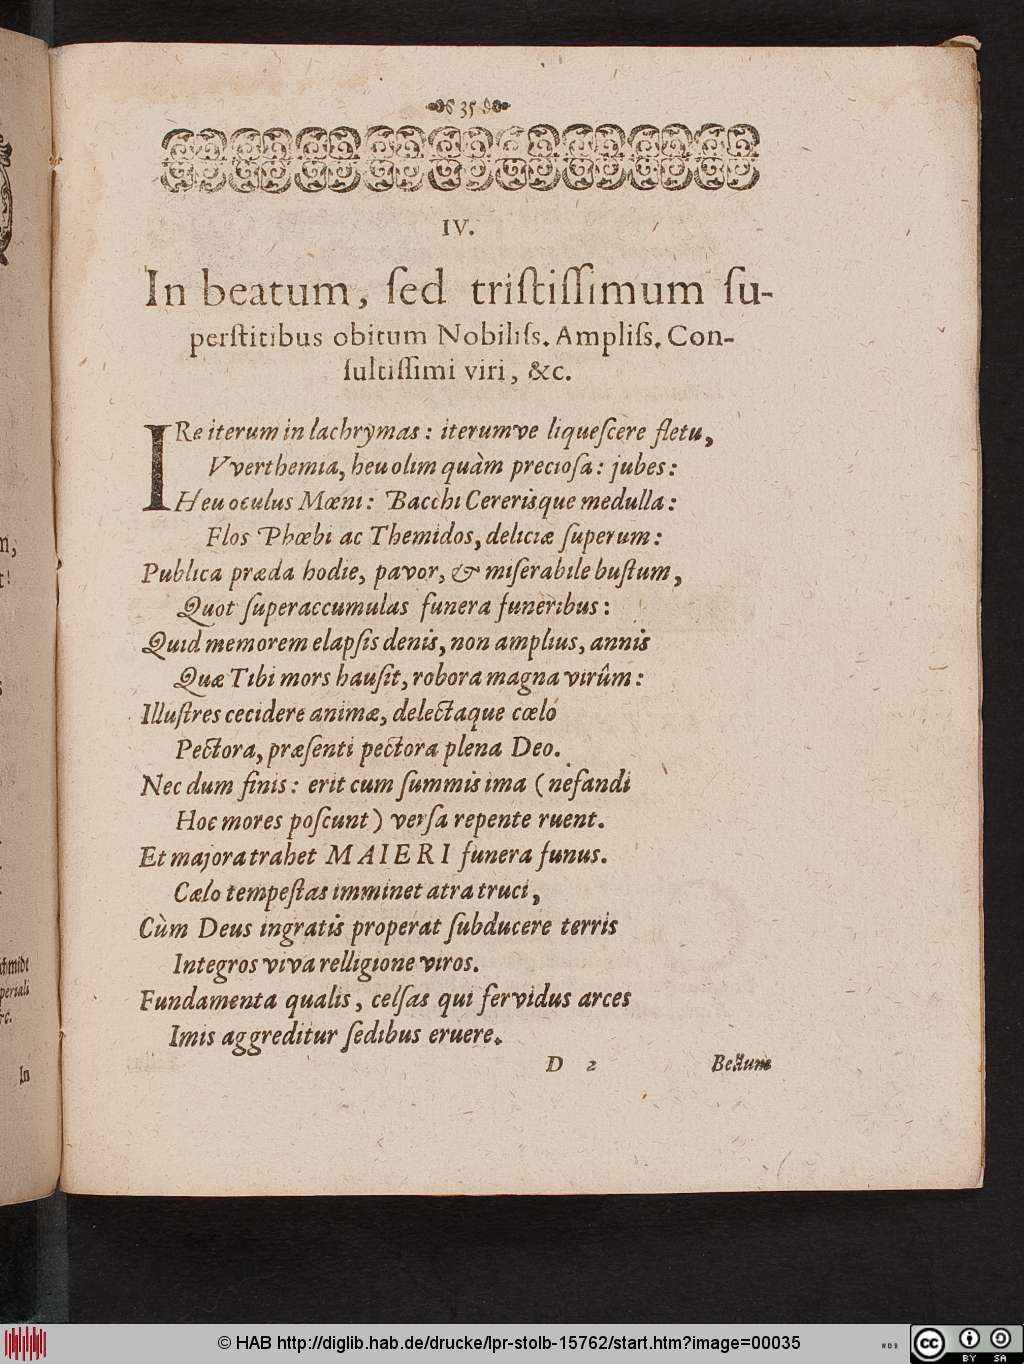 35
IV.
In beatum, ſed triſtiſſimum ſu-
perſtitibus obitum Nobiliſs. Ampliſs. Con-
ſultiſſimi viri, &c.
IRe iterum in lachrymas: iterumve liqueſcere fletu,
VVerthemia, heu olim quàm precioſa: jubes:
Heu oculus Mœni: Bacchi Cererisque medulla:
Flos Phœbi ac Themidos, deliciæ ſuperum:
Publica præda hodie, pavor, & miſerabile buſtum,
Quot ſuperaccumulas funera funeribus:
Quid memorem elapſis denis, non amplius, annis
Quæ Tibi mors hauſit, robora magna virûm:
Illuſtres cecidere animæ, delectaque cœlo
Pectora, præſenti pectora plena Deo.
Nec dum finis: erit cum ſummis ima (nefandi
Hoc mores poſcunt) verſa repente ruent.
Et majora trahet MAIERI funera funus.
Cælo tempeſtas imminet atra truci,
Cùm Deus ingratis properat ſubducere terris
Integros viva relligione viros.
Fundamenta qualis, celſas qui fervidus arces
Imis aggreditur ſedibus eruere.
D 2
m,
t!
s
chmidt
periali
rc.
In
© HAB http://diglib.hab.de/drucke/lpr-stolb-15762/start.htm?image=00035
cc
BY SA